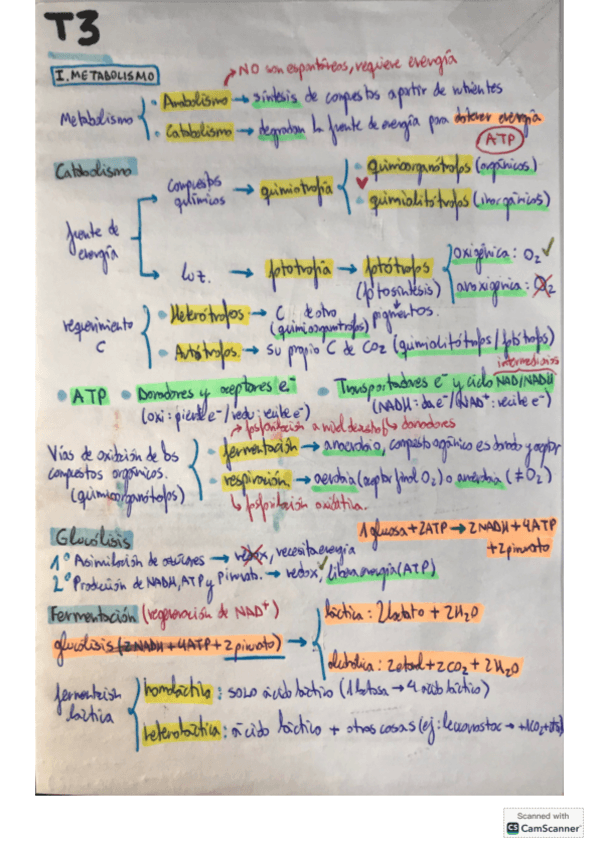 T3
I. METABOLISMO
NO son espontáneas, requiere energía
Metabolismo
• Anabolismo → síntesis de compuestos a partir de nutrientes
• Catabolismo → degradan la fuente de energía para obtener energía
ATP
Catabolismo
fuente de energía
compuestos químicos → quimiotrofía
• quimiorganótrofos (orgánicos)
• quimiolitótrofos (inorgánicos)
luz. → fototrofía → fotótrofos
(fotosíntesis)
pigmentos.
oxigénica: O2 ✓
anoxigénica: O2
requerimiento C
• Heterótrofos → C de otro
(quimiorganotrofos)
• Autótrofos → su propio C de CO2 (quimiolitótrofos/fotótrofos)
intermediarios
• ATP • Donadores y aceptores e- • Transportadores e- y ciclo NAD/NADH
(oxi: pierde e-/redu: recibe e-) (NADH: da e-/NAD+: recibe e-)
Vías de oxidación de los
compuestos orgánicos.
(quimiorganótrofos)
fosforilación a nivel de sustrato donadores
• fermentación → anaerobio, compuesto orgánico es donador y aceptor
• respiración. → aerobia (aceptor final O2) o anaerobia (≠ O2)
fosforilación oxidativa.
Glucólisis
1 glucosa + 2ATP → 2NADH + 4ATP
+ 2 piruvato
1º → redox, necesita energía
2º Producción de NADH, ATP y Piruvato. → redox, libera energía (ATP)
Fermentación (regeneración de NAD+)
glucólisis (2NADH + 4ATP + 2 piruvato) →
láctica: 2 lactato + 2H2O
alcohólica: 2 etanol + 2CO2 + 2H2O
fermentación láctica
homoláctica: solo ácido láctico (1 lactosa → 4 ácido láctico)
heteroláctica: ácido láctico + otras cosas (ej: leuconostoc →
Scanned with
CS CamScanner